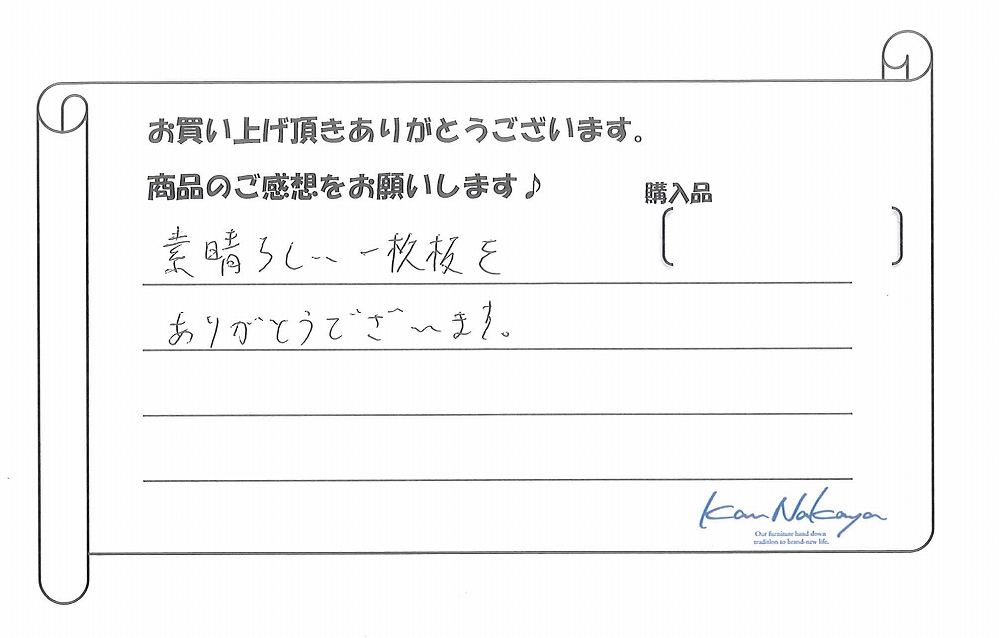 お買い上げ頂きありがとうございます。
商品のご感想をお願いします♪
購入品
素晴らしい一枚板を
ありがとうございます。
Kan Nakaya
Our furniture hand down
tradition to brand-new life.